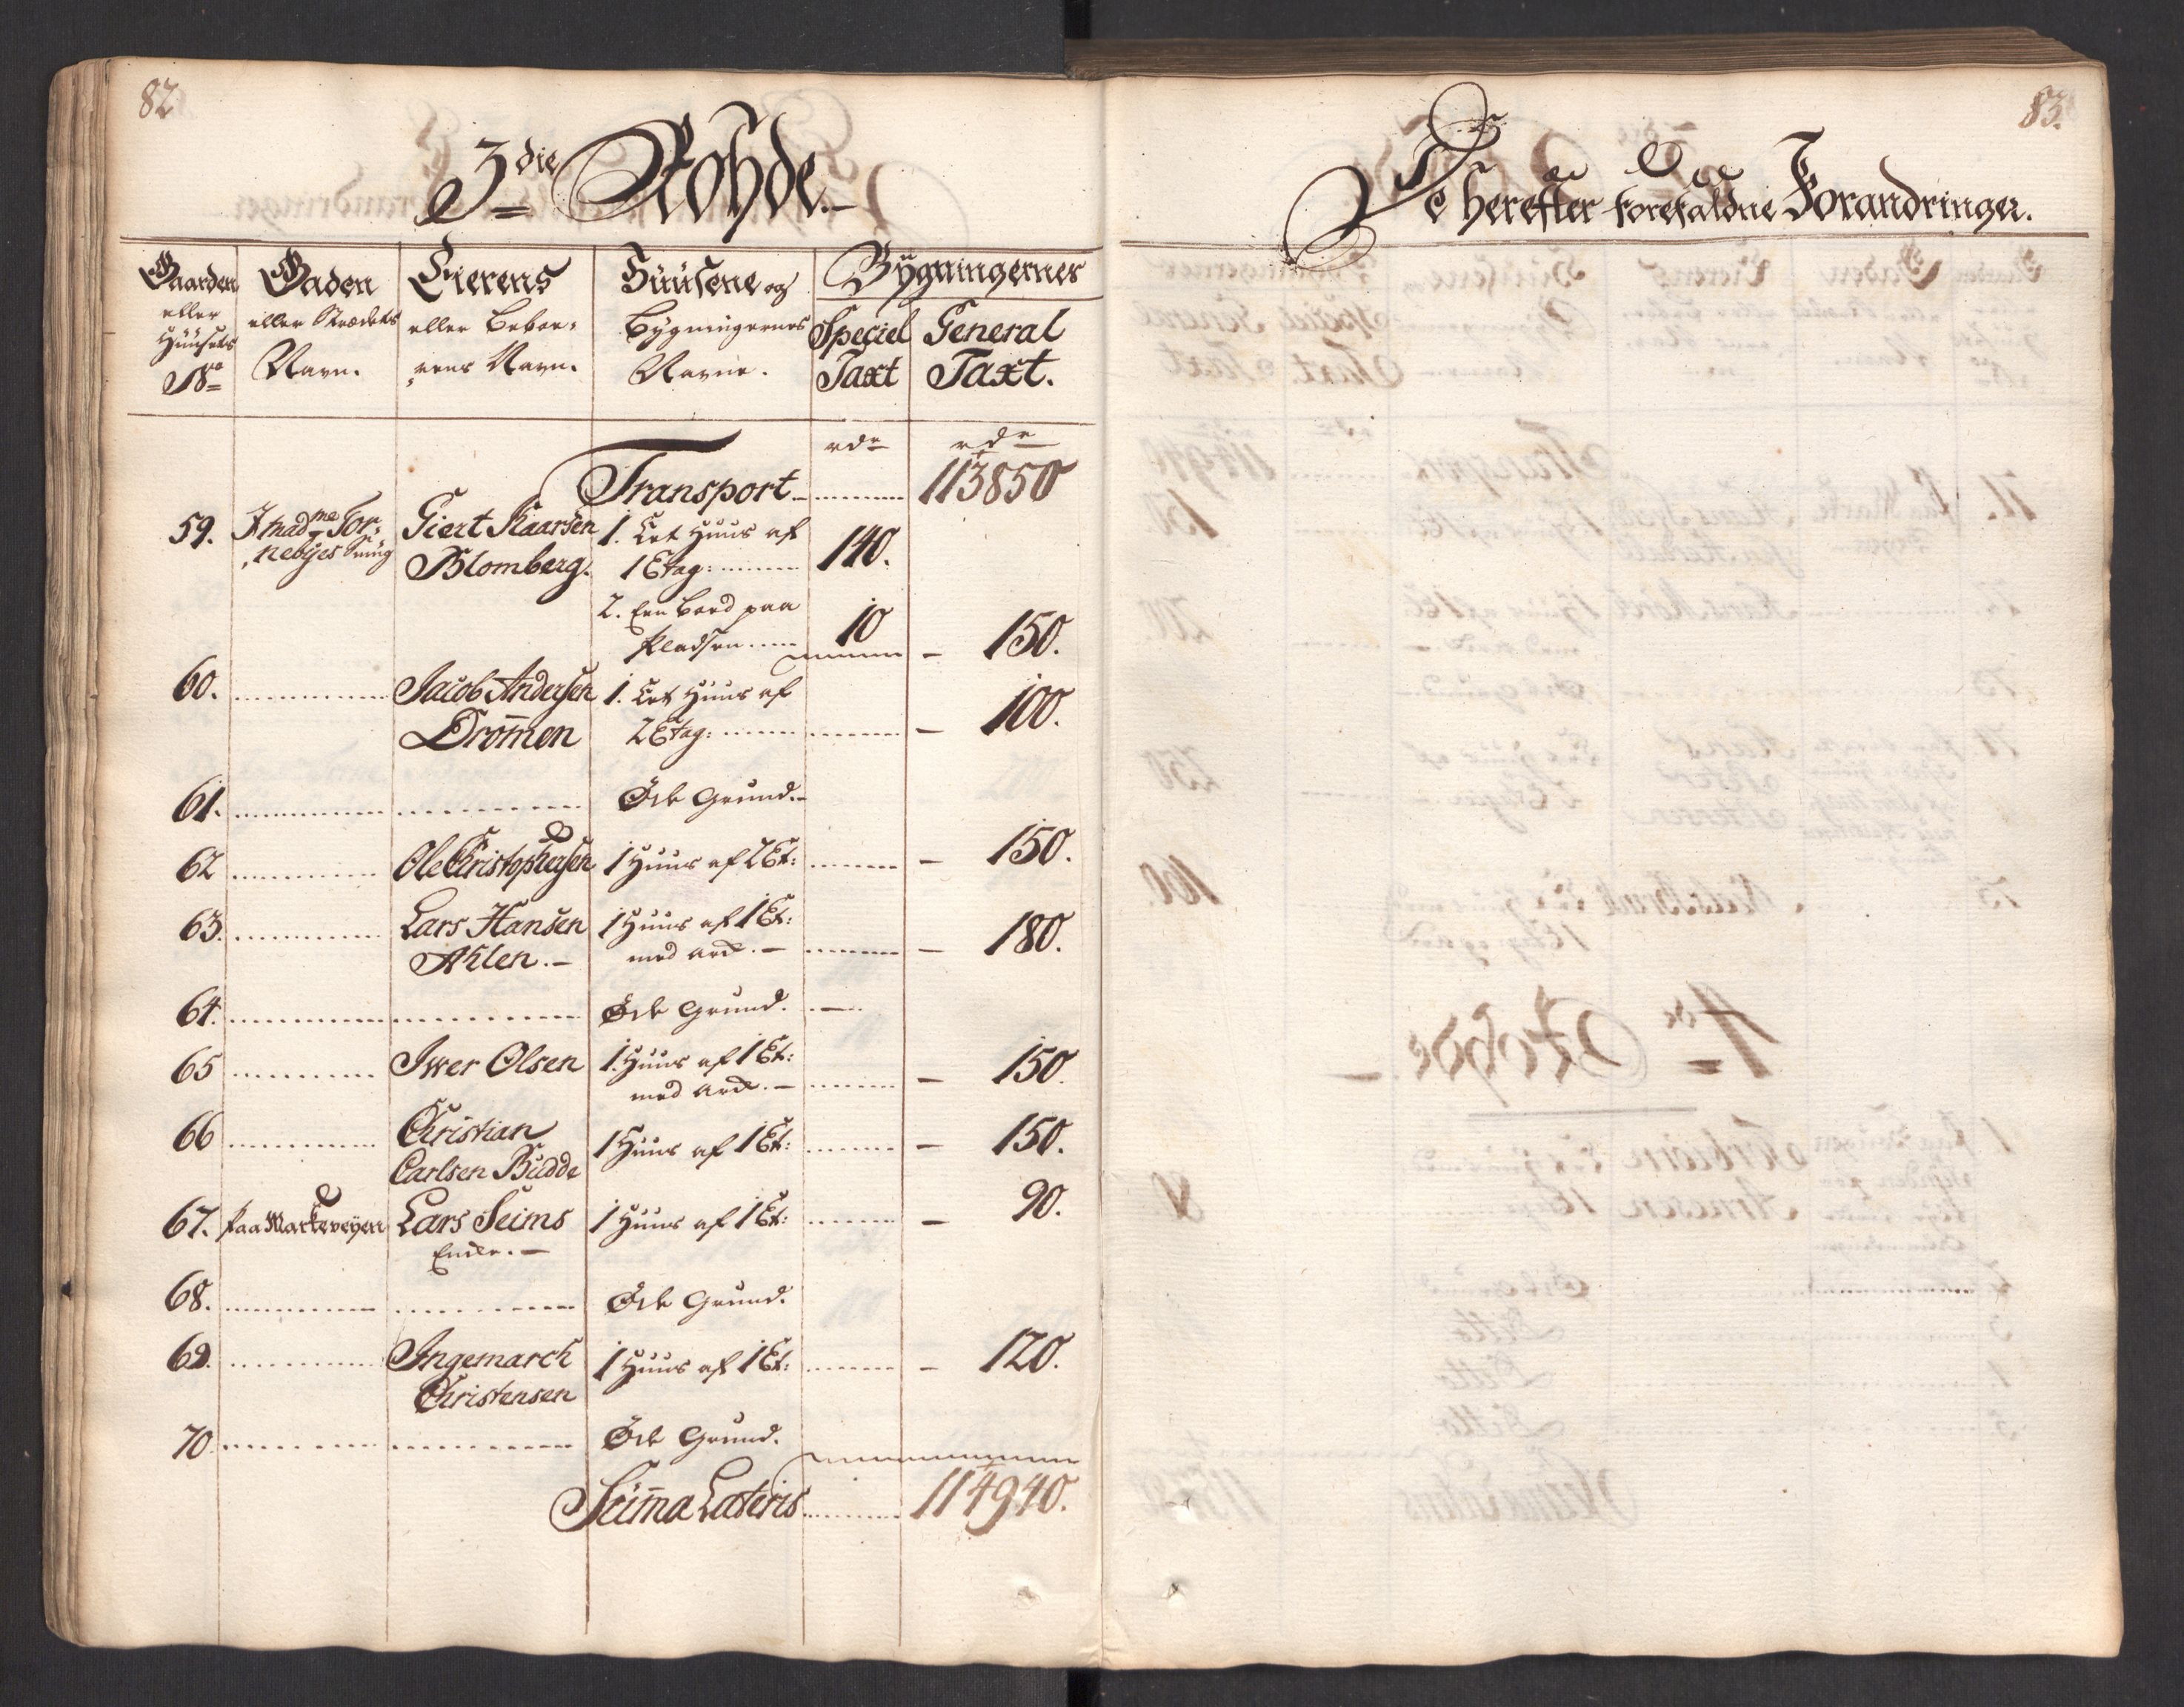 82
3die Rohde.
Gaarden eller Huusets No
Gaden eller Strædets Navn.
Eierens eller Beboerens Navn.
Huusene og Bygningernes Navne.
Bygningernes
Speciel Taxt
General Taxt.
rdr rdr
Transport 113850
59. I Mad.me Tor- Giert Klaarsen 1. Let Huus af
nebyes Smug Blomberg. 1 Etag: 140.
2. Een Boed paa
Pladsen 10 – 150.
60. Jacob Andersen 1. Let Huus af
Drommen 2 Etag: – 100.
61. Öde Grund.
62 Ole Christophersen 1 Huus af 2 Et: – 150.
63. Lars Hansen 1 Huus af 1 Et:
Ahlen. – med Ark. – – 180.
64. Öde Grund. –
65 Iwer Olsen 1. Huus af 1 Et:
med Ark. – – 150.
66 Christian
Carlsen Budde 1 Huus af 1 Et: – 150.
67. paa Markeveyen Lars Seims 1 Huus af 1 Et: – 90.
Enke. –
68. Öde Grund.
69. Ingemarch 1 Huus af 1 Et: – 120.
Christensen
70. Öde Grund.
Suma Lateris 114940.
83.
De herefter forefaldne Forandringer.